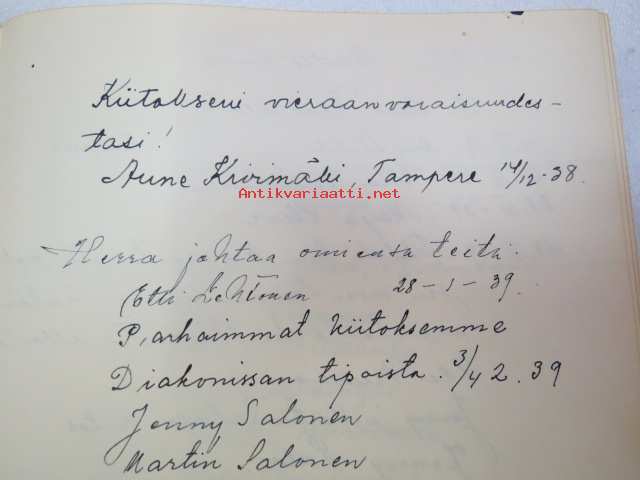 Kiitokseni vieraanvaraisuudes-
tasi!
Aune Kivimäki, Tampere 14/12-38.
Antikvariaatti.net
Herra johtaa omiensa teitä.
Elli Lehtonen 28-1-39.
Parhaimmat kiitoksemme
Diakonissan tipoista. 3/4 2.39
Jenny Salonen
Martin Salonen